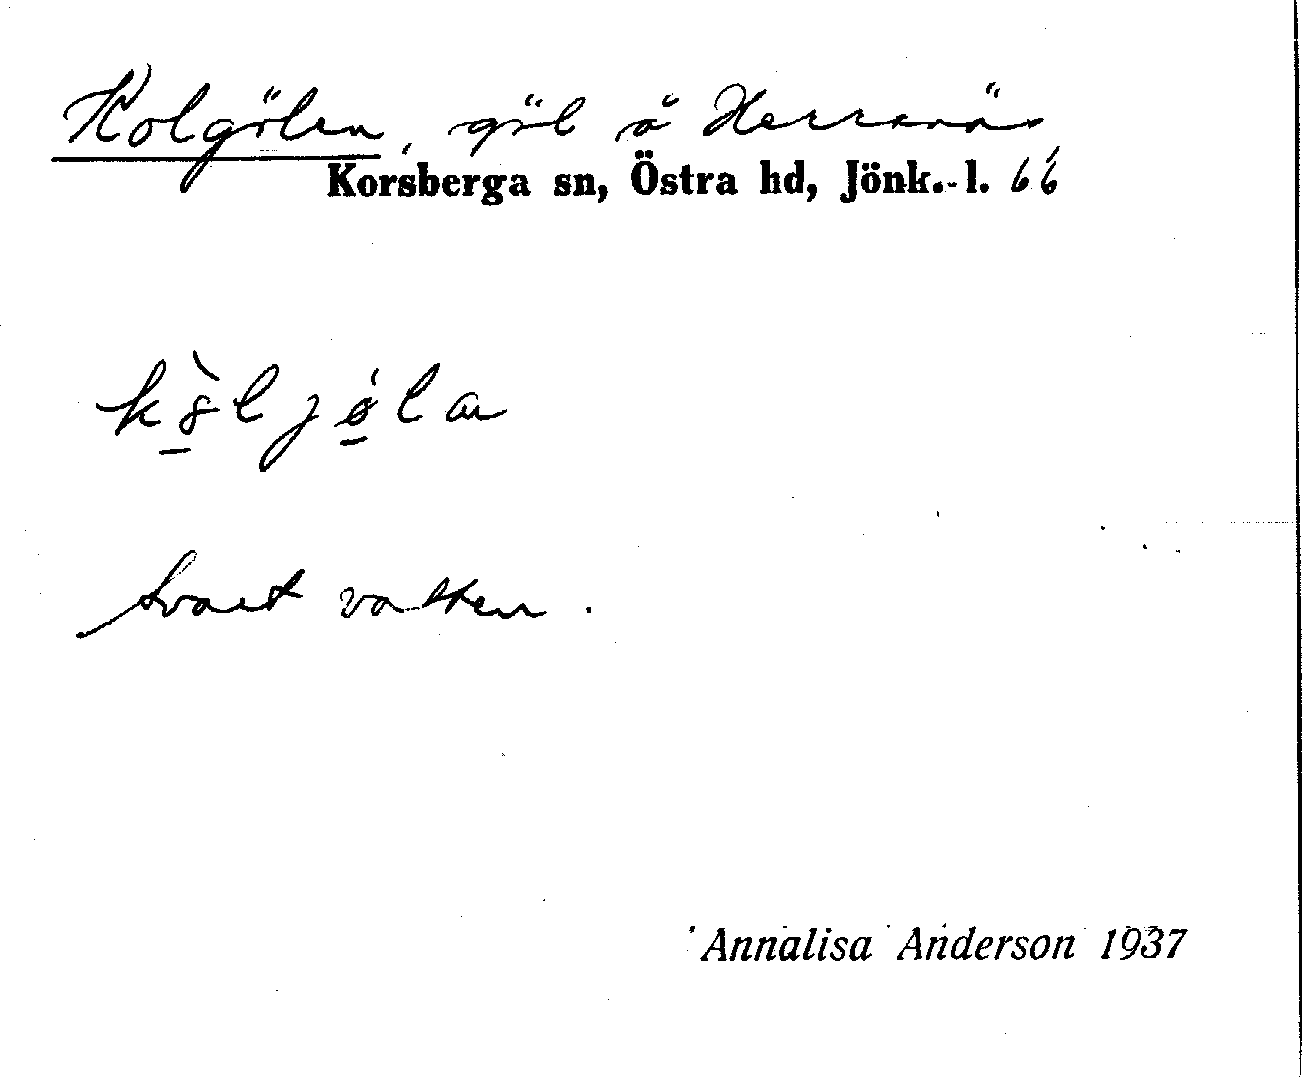 Kolgölen, göl å Herranäs
Korsberga sn, Östra hd, Jönk.-l. 66
Svart vatten.
Annalisa Anderson 1937